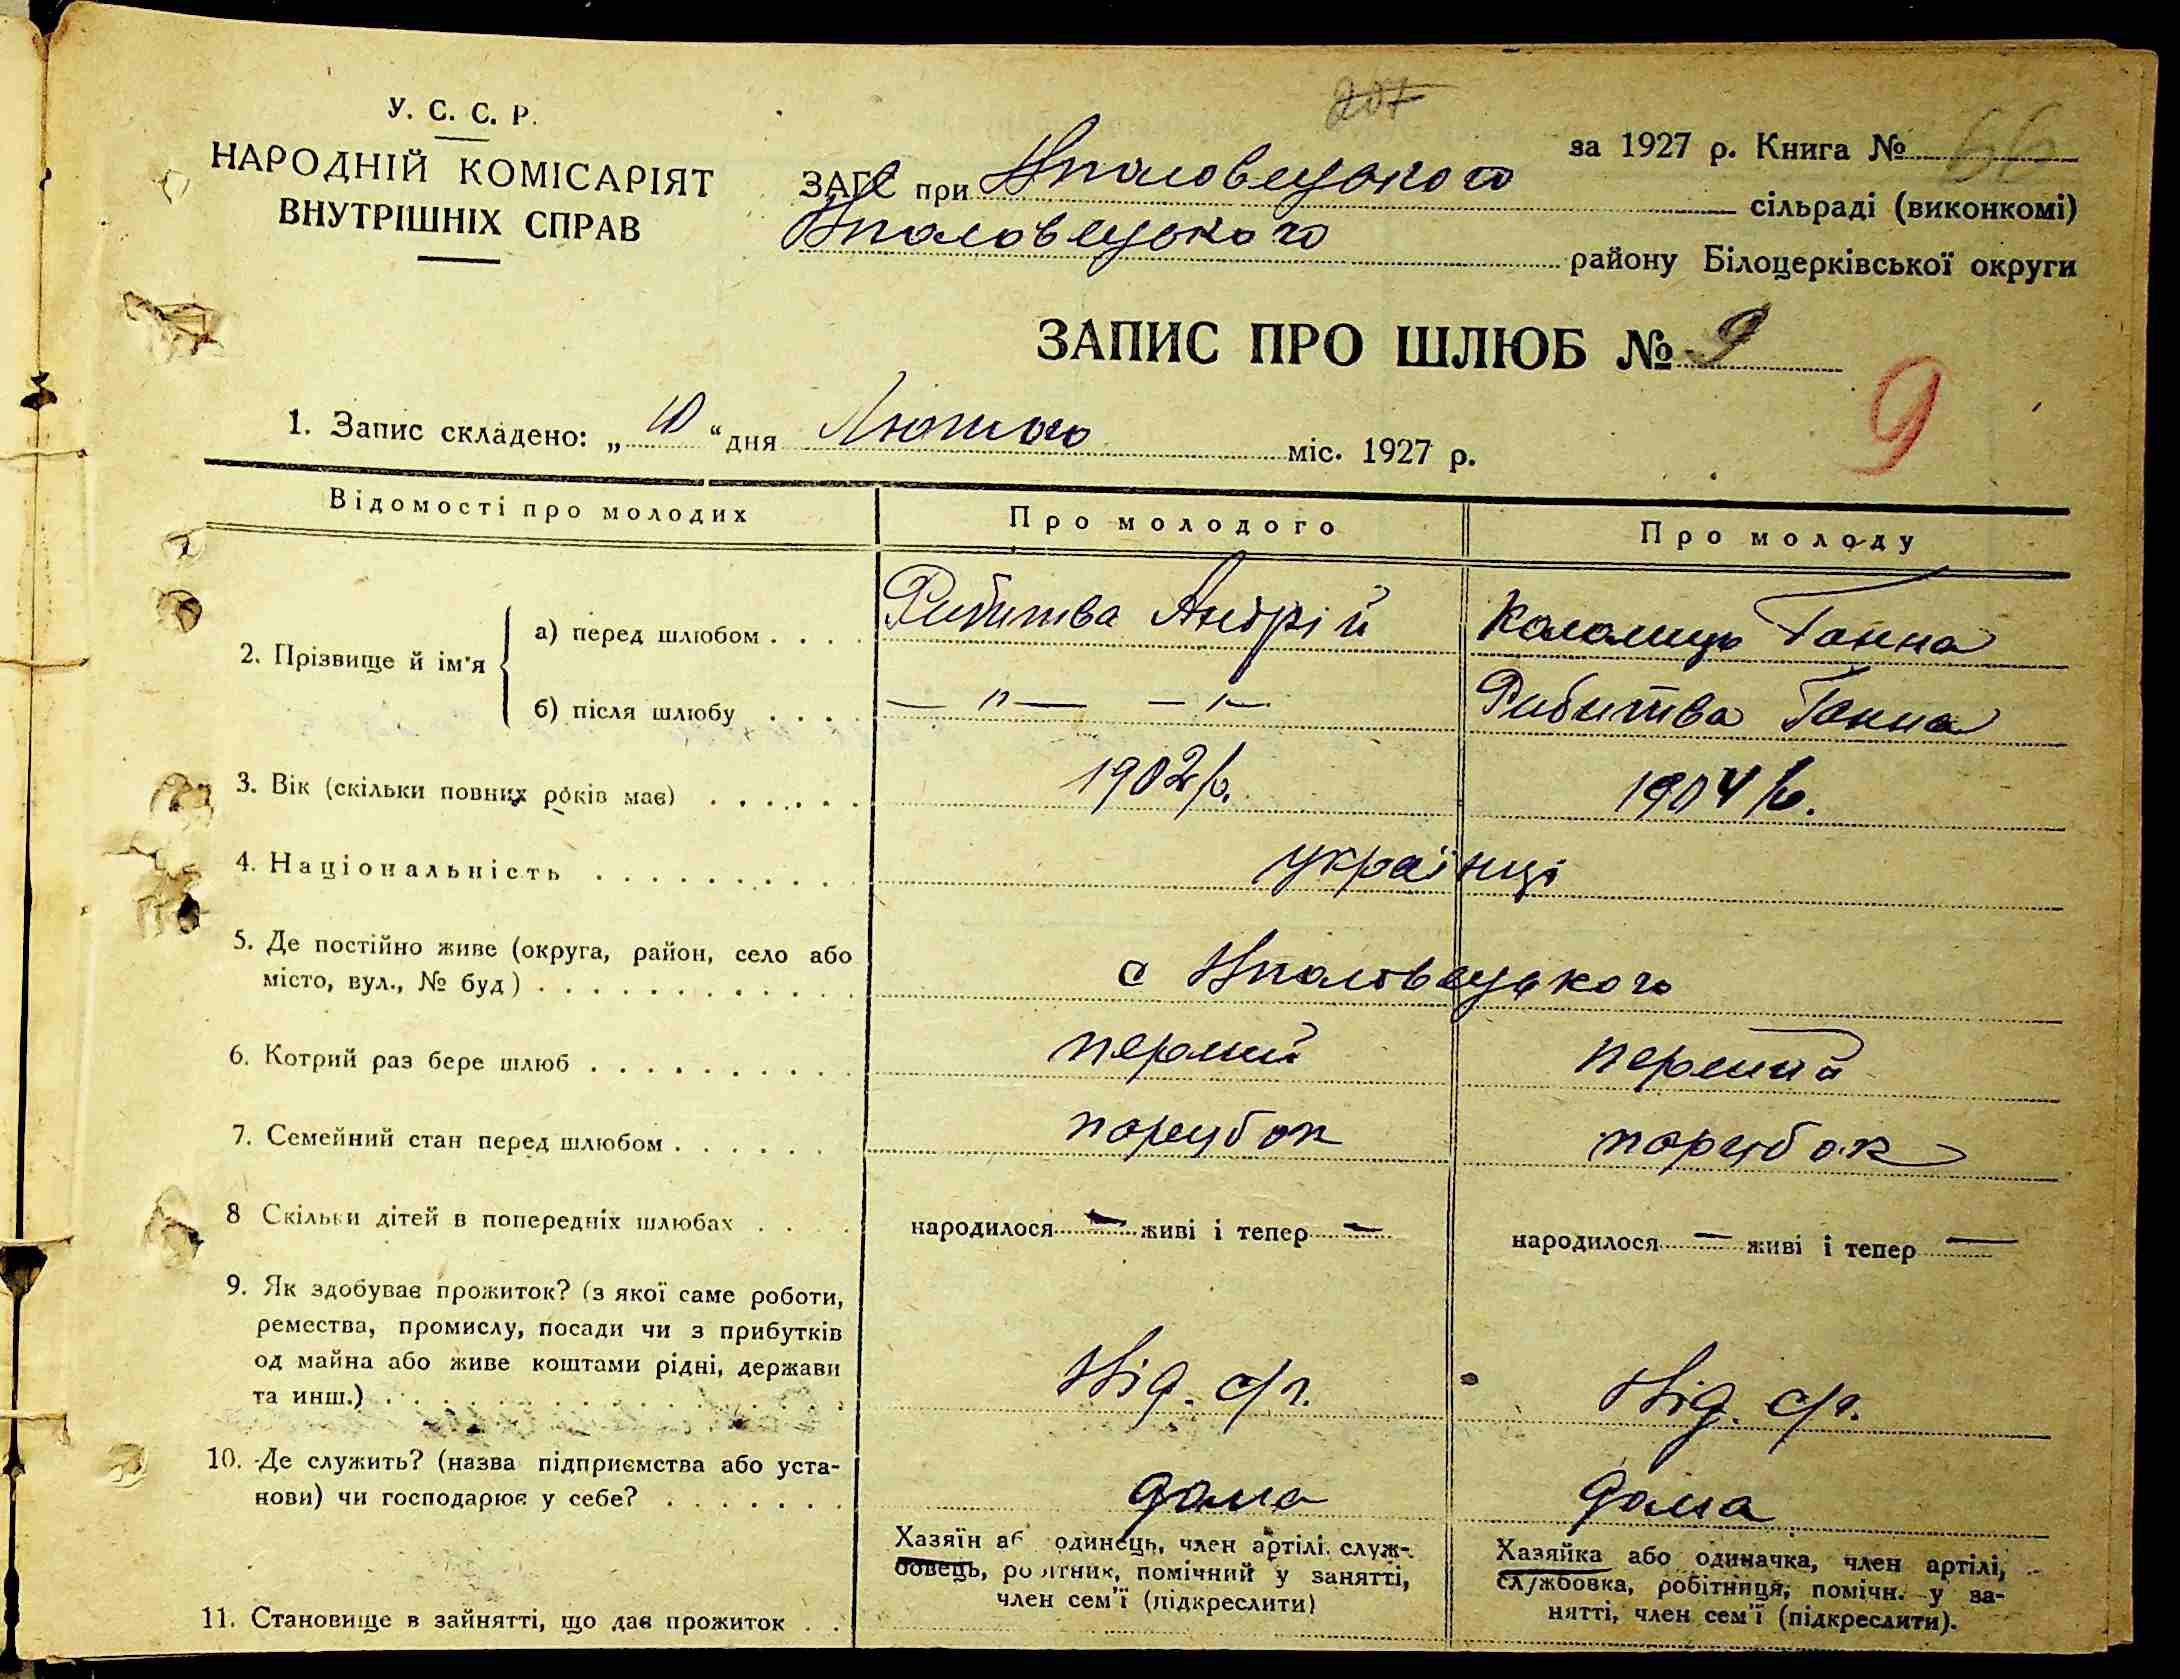 207
У. С. С. Р.
НАРОДНІЙ КОМІСАРІЯТ
ВНУТРІШНІХ СПРАВ
за 1927 р. Книга № 66
ЗАГС при Нполовецького сільраді (виконкомі)
Вполовецького району Білоцерківської округи
ЗАПИС ПРО ШЛЮБ № 9
9
1. Запис складено: „ 10 “ дня Лютого міс. 1927 р.
Відомості про молодих Про молодого Про молоду
2. Прізвище й ім'я
а) перед шлюбом . . . . Рибитва Андрій Коломиць Ганна
б) після шлюбу . . . . — " — — " — Рибитва Ганна
3. Вік (скільки повних років має) . . . . . . 1902 р. 1904 р.
4. Національність . . . . . . . . . . українці
5. Де постійно живе (округа, район, село або
місто, вул., № буд) . . . . . . . . . . . . с Нполовецького
6. Котрий раз бере шлюб . . . . . . . . . . перший перший
7. Семейний стан перед шлюбом . . . . . . парубок парубок
8 Скільки дітей в попередніх шлюбах . . . . народилося — живі і тепер — народилося — живі і тепер —
9. Як здобуває прожиток? (з якої саме роботи,
ремества, промислу, посади чи з прибутків
од майна або живе коштами рідні, держави
та инш.) . . . . . . . . . . . . . . с/г. с/г.
10. Де служить? (назва підприємства або уста-
нови) чи господарює у себе? . . . . . . . дома дома
11. Становище в зайнятті, що дає прожиток . .
Хазяїн аб одинець, член артілі, служ-
бовець, робітник, помічний у занятті,
член сем'ї (підкреслити)
Хазяйка або одиначка, член артілі,
службовка, робітниця, помічн. у за-
нятті, член сем'ї (підкреслити).